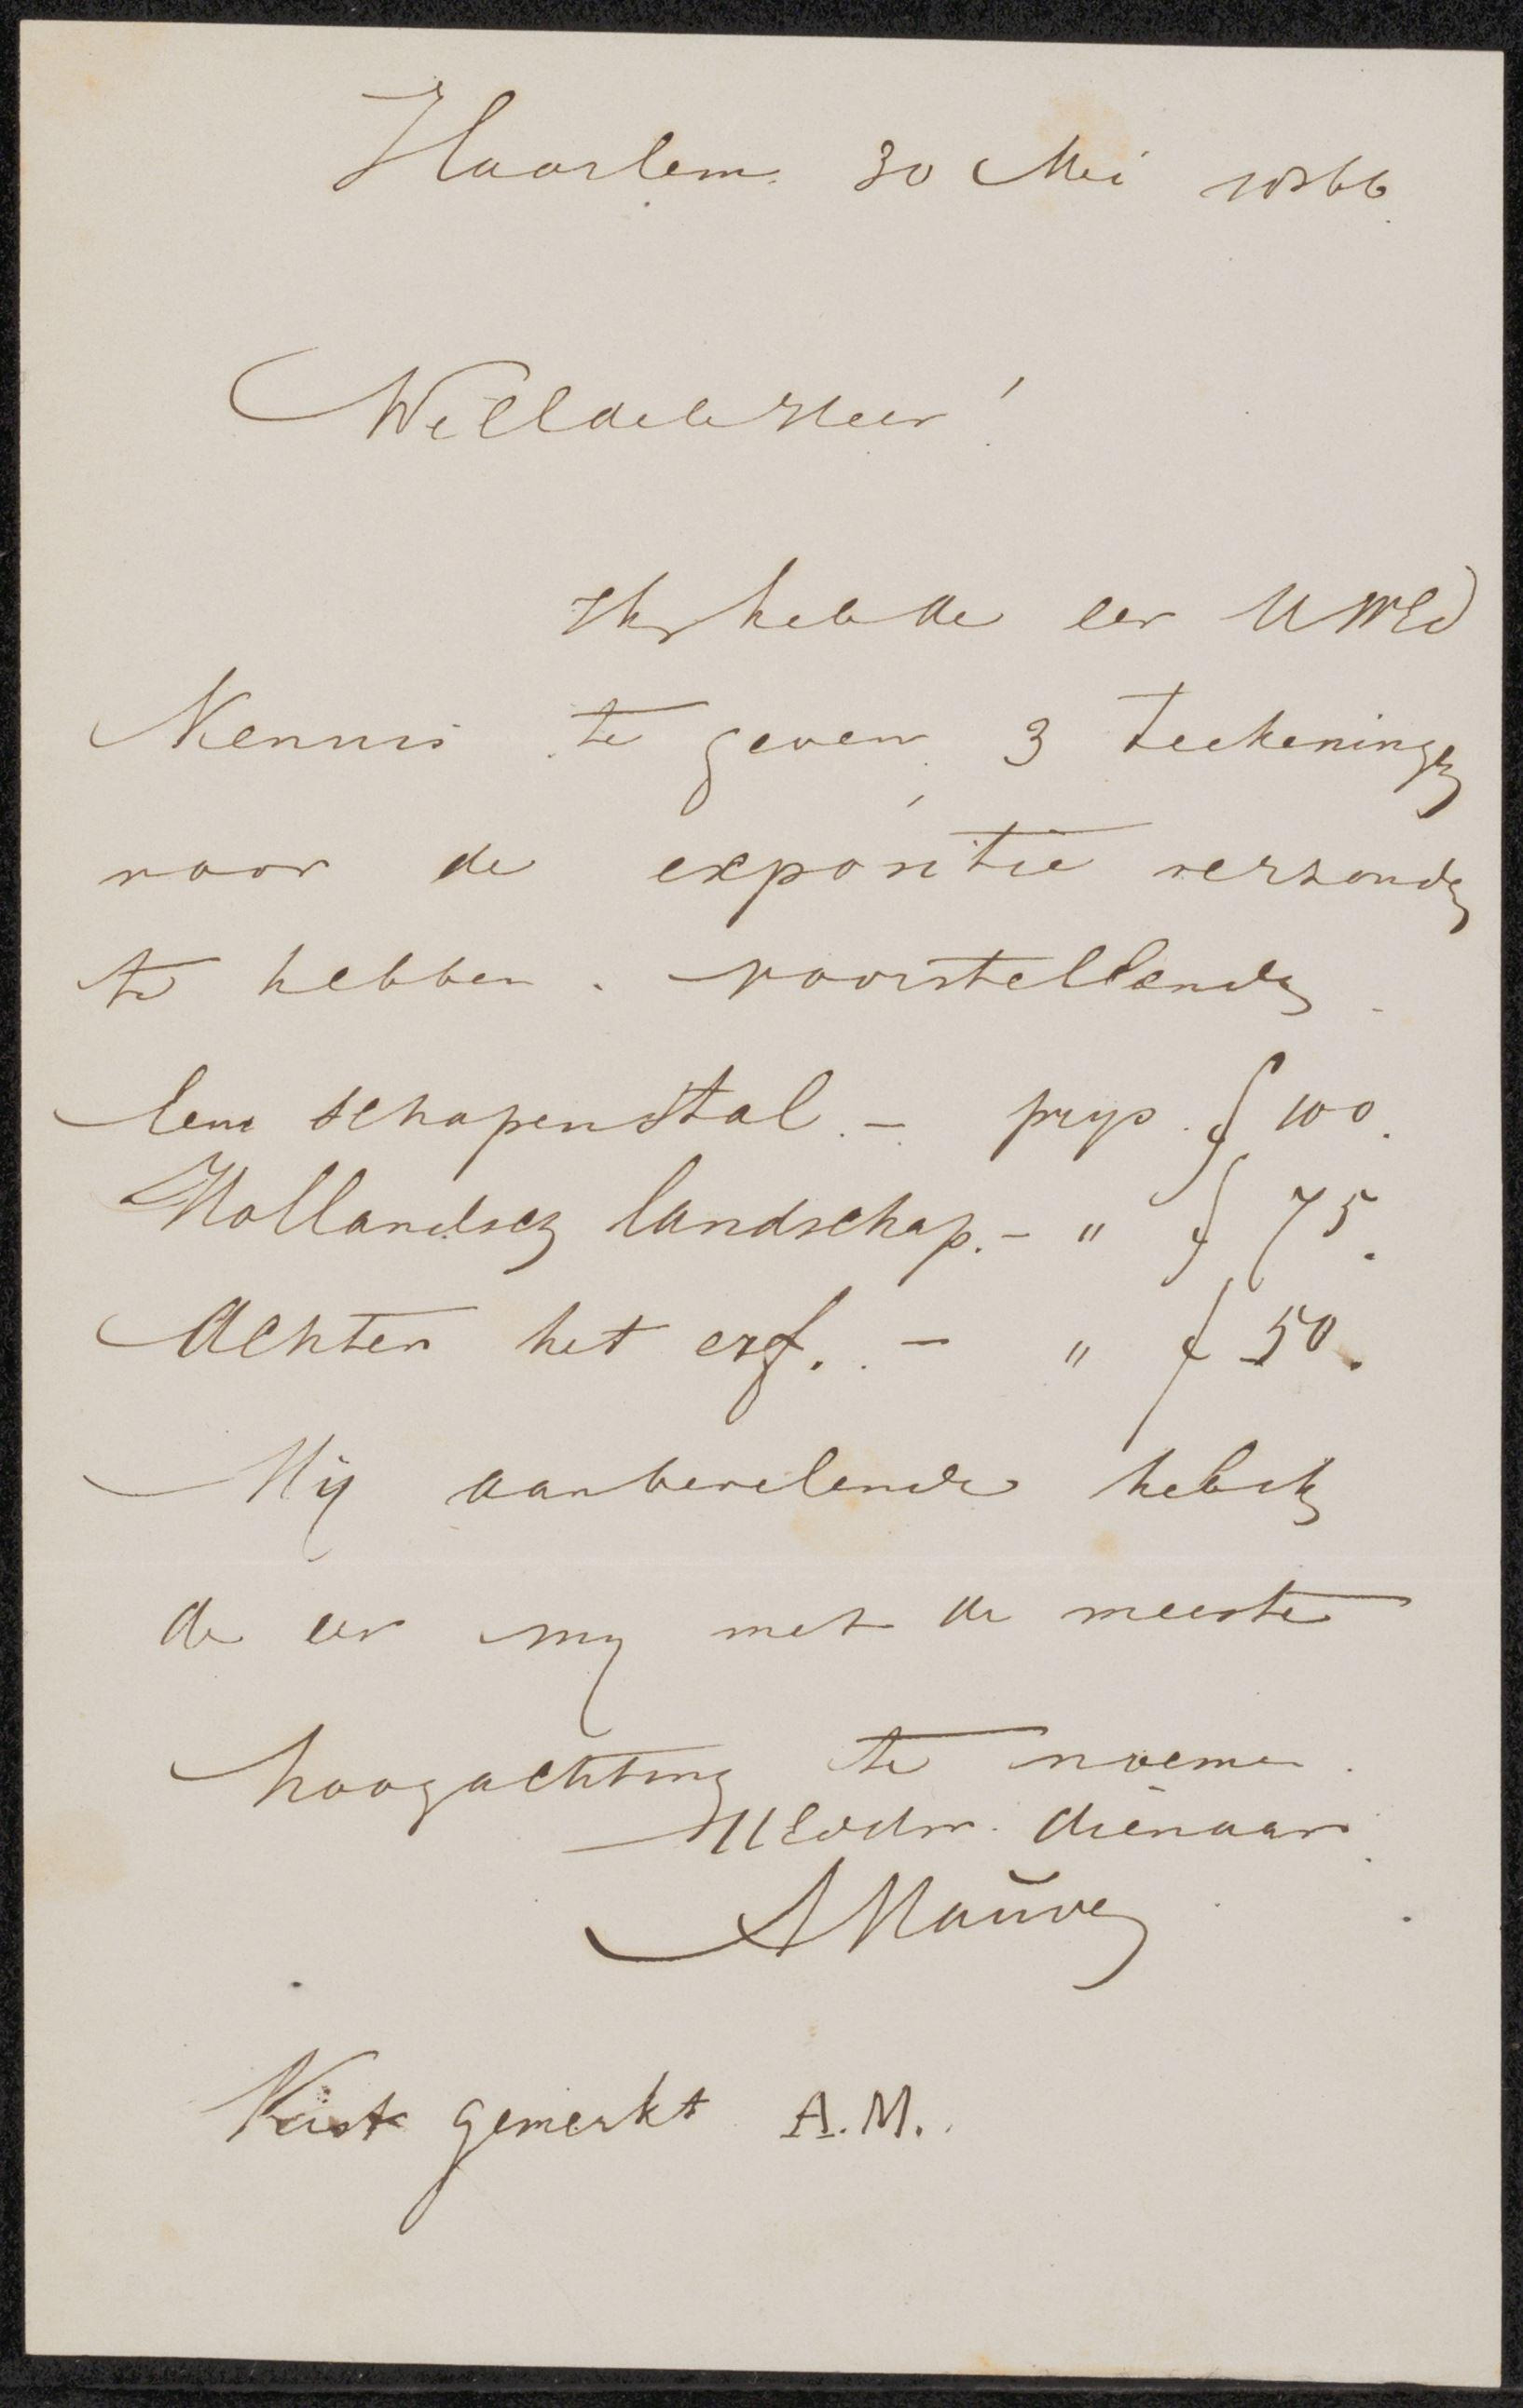 Haarlem 30 Mei 1866
WelEdele Heer!
Ik heb de eer UWEd
Kennis te geven 3 teekeningen
voor de expositie verzonden
te hebben. voorstellende
Een schapenstal. - prijs f 100.
Hollandsch landschap. - " f 75.
Achter het erf. - " f 50.
Mij aanbevelende heb ik
de eer mij met de meeste
hoogachting te noemen.
UEddw. dienaar
A Mauve
Kist gemerkt A.M.